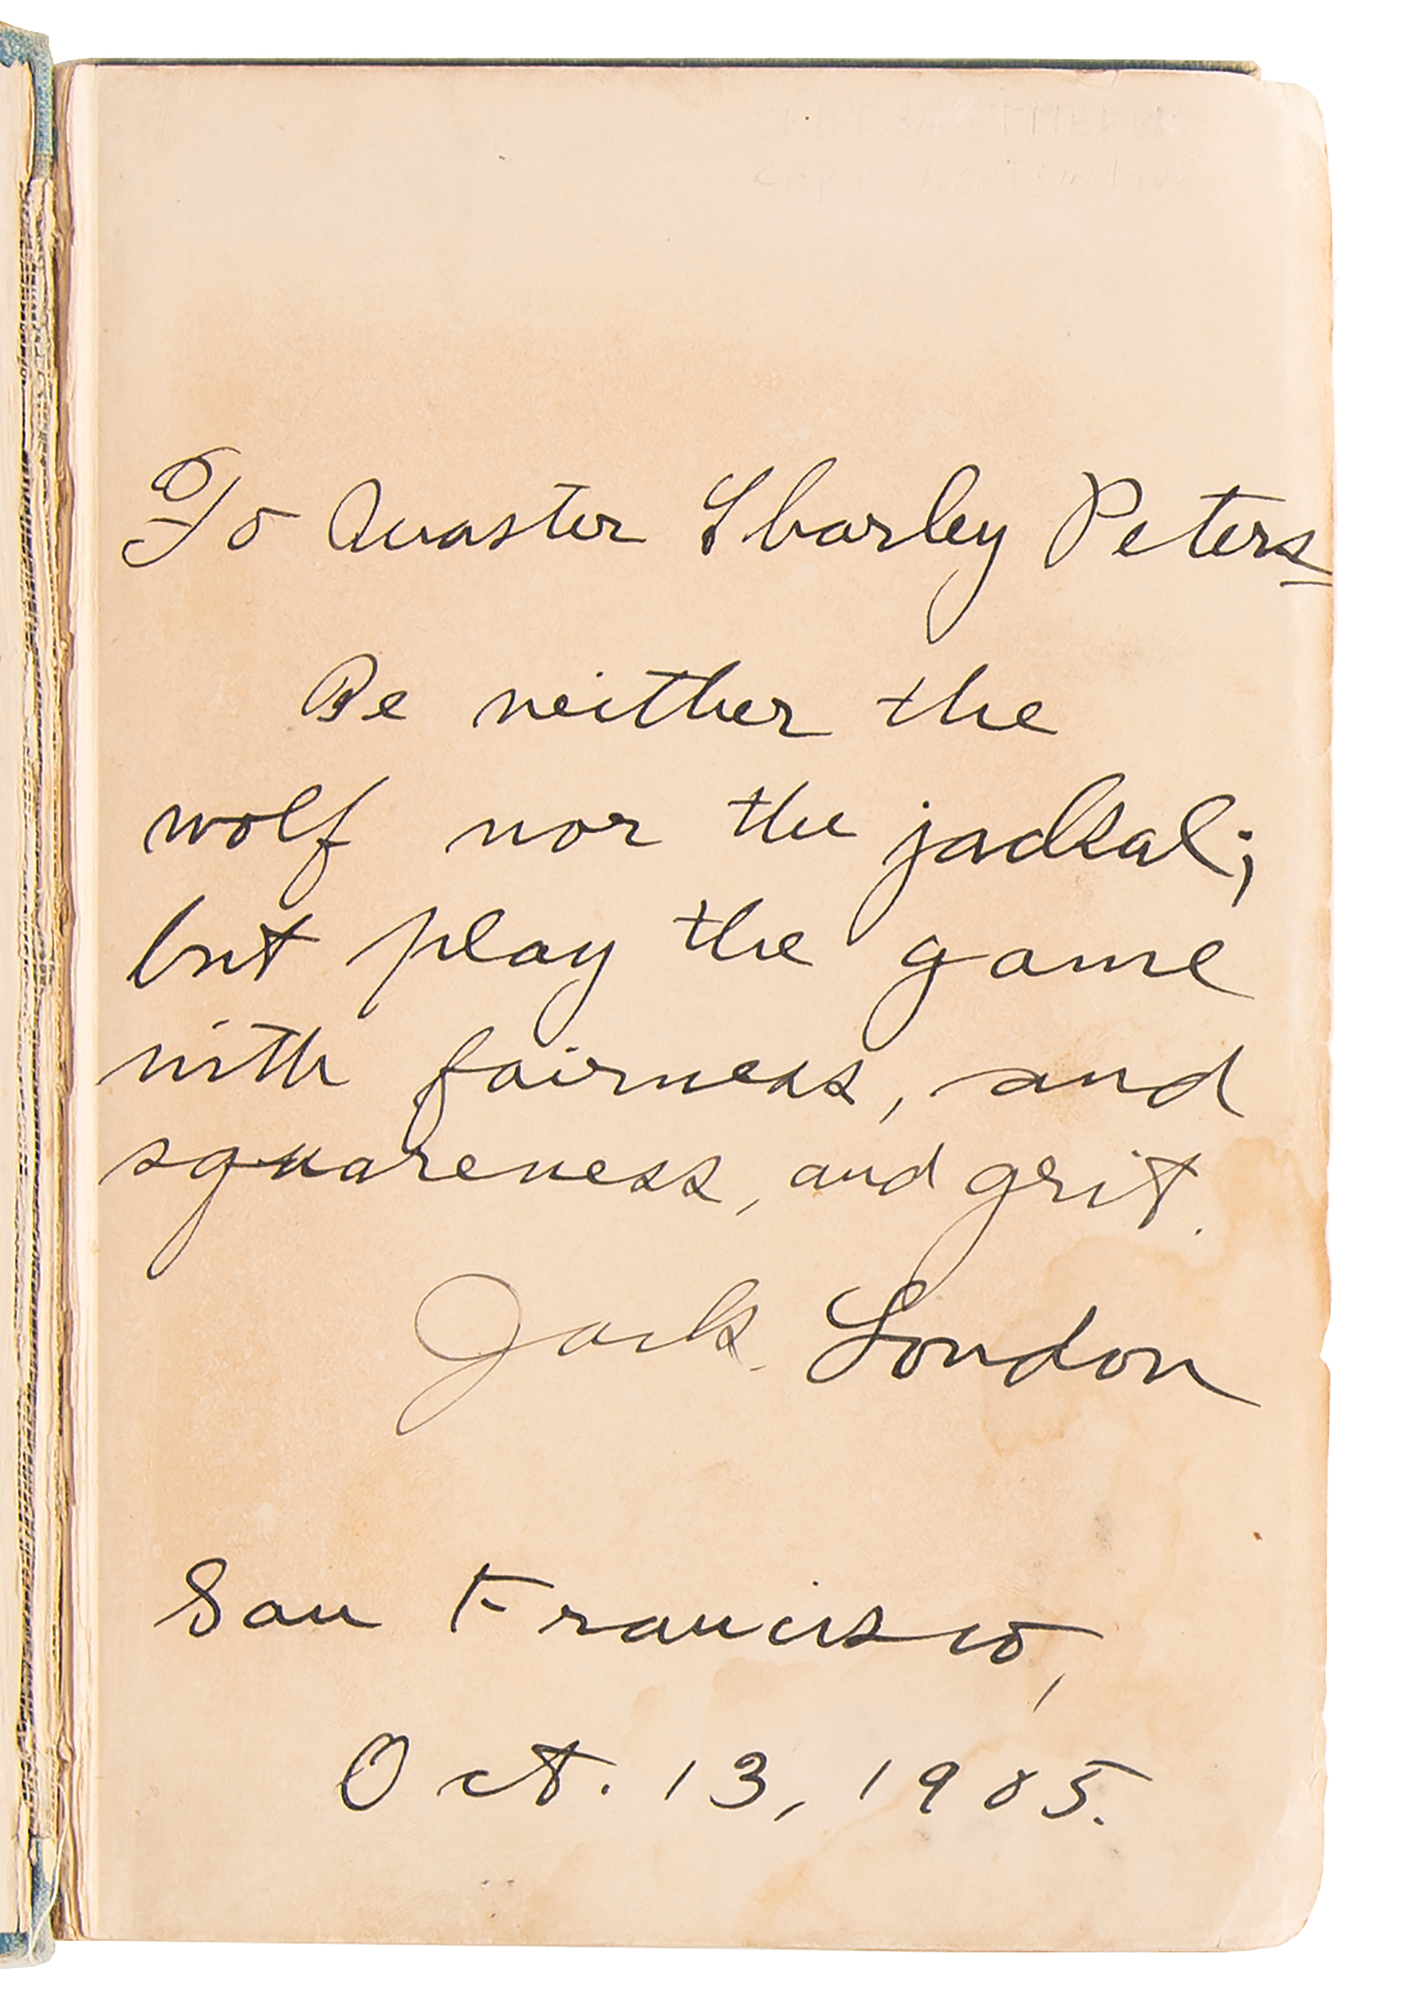 To Master Charley Peters
Be neither the
wolf nor the jackal;
but play the game
with fairness, and
squareness, and grit.
Jack London
San Francisco,
Oct. 13, 1905.